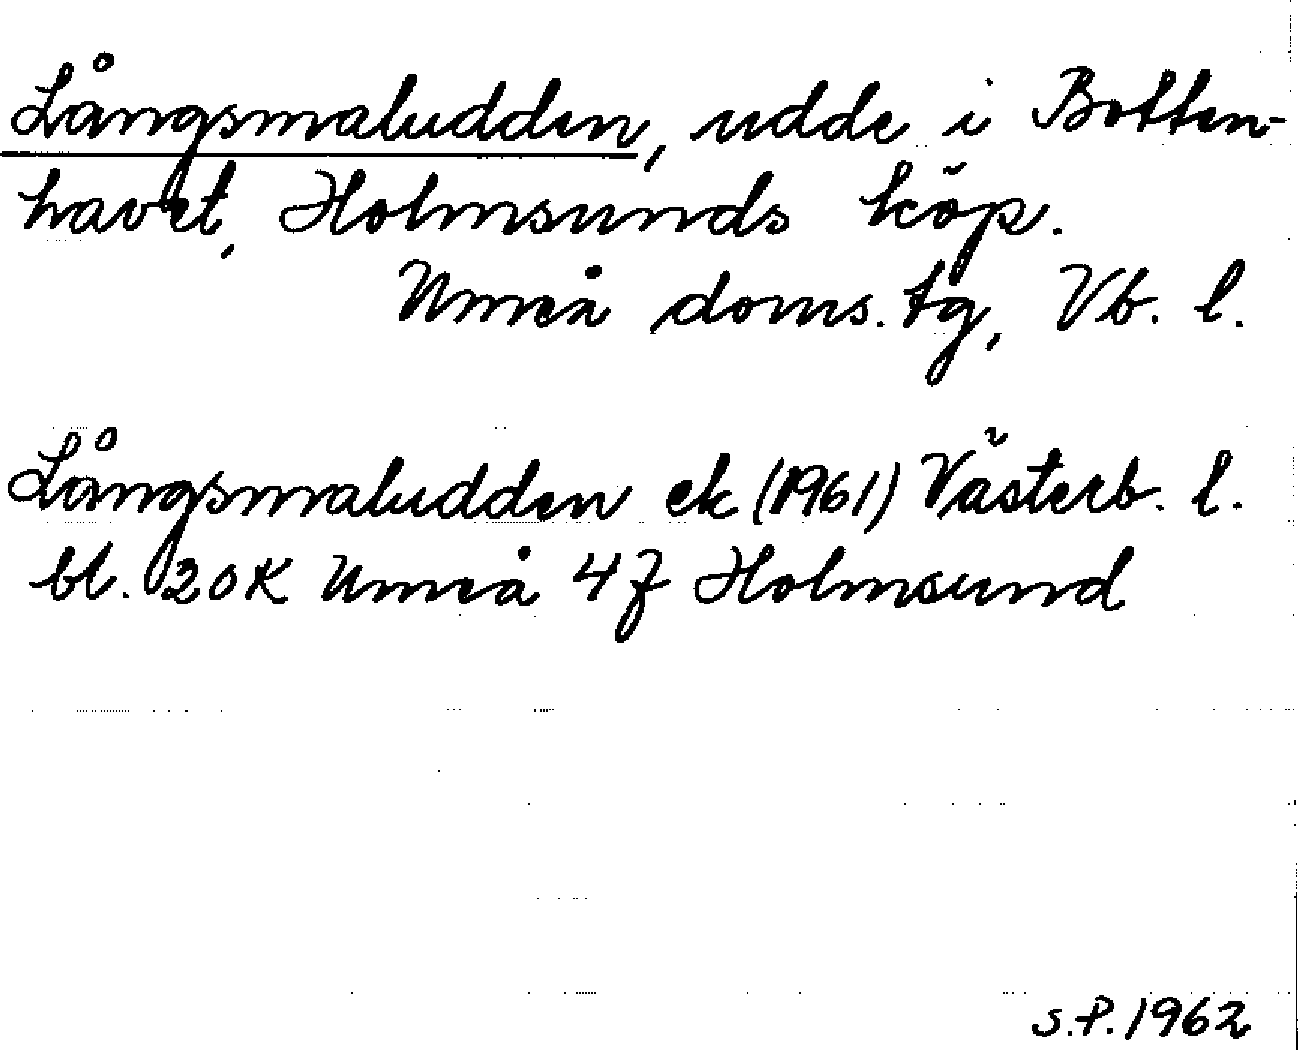 Långsmaludden, udde i Botten-
havet, Holmsunds köp.
Umeå doms. tg, Vb. l.
Långsmaludden ek (1961) Västerb. l.
bl. 20K Umeå 4f Holmsund
S.P. 1962